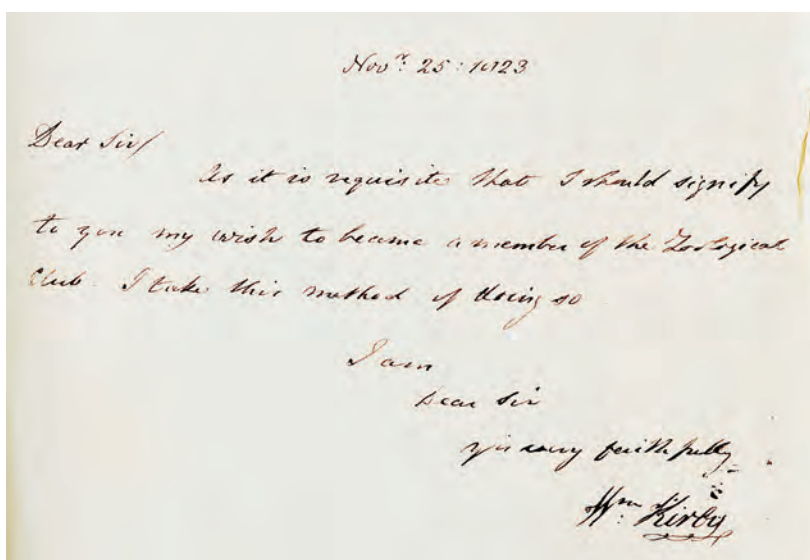 Novr. 25: 1823
Dear Sir/
As it is requisite that I should signify
to you my wish to become a member of the Zoological
Club. I take this method of doing so
I am
Dear Sir
yrs very faithfully
Wm: Kirby